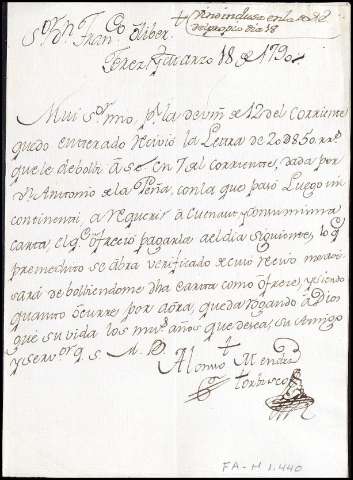 Sor Dn Franco Oliber.
+ vino inclusa en la
del propio dia 18
Jerez y Marzo 18 de 1790
Mui Sor mio, pr la de vm de 12 del corriente
quedo enterado recivió la Letra de 20850 rrs
que le debolbi â Se en 7 del corriente, dada por
Dn Antonio de la Peña, con la que pasó Luego in
continenti, a requerir â con mi misma
carta, el qe ofreció pagarla al dia siguiente, lo qe
premedito se abra verificado cuio recivo me avi-
sará debolbiendome dha carta como ôfrece, y siendo
quanto ôcurre por aôra, queda rogando â Dios
gue su vida los ms años que desea, su Amigo
y servor q. S. M. B.
Alonso Mendez
FA-M 1.440